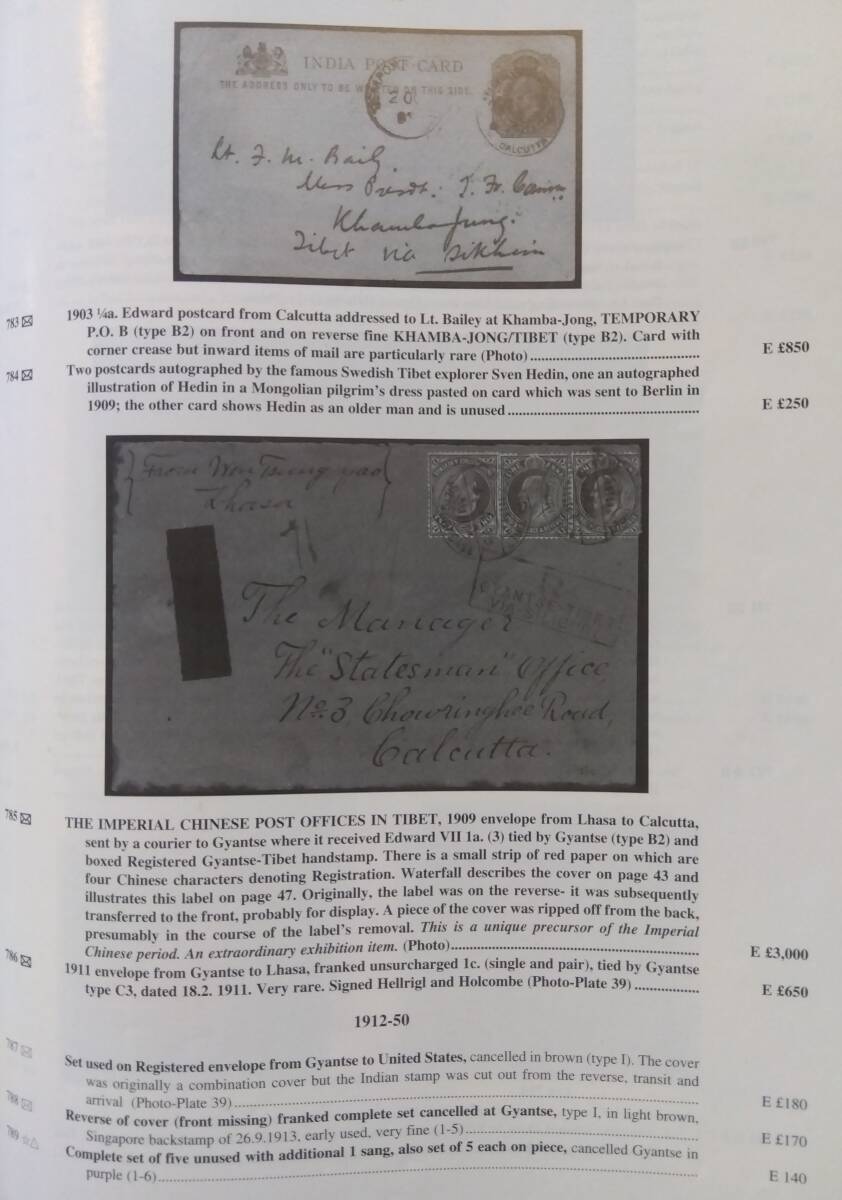 INDIA POST CARD
THE ADDRESS ONLY TO BE WRITTEN ON THIS SIDE.
20
CALCUTTA
Lt. F. M. Baily
Khamba Jung.
Tibet via Sikhim
783 1903 ¼a. Edward postcard from Calcutta addressed to Lt. Bailey at Khamba-Jong, TEMPORARY
P.O. B (type B2) on front and on reverse fine KHAMBA-JONG/TIBET (type B2). Card with
corner crease but inward items of mail are particularly rare (Photo) E £850
784 Two postcards autographed by the famous Swedish Tibet explorer Sven Hedin, one an autographed
illustration of Hedin in a Mongolian pilgrim's dress pasted on card which was sent to Berlin in
1909; the other card shows Hedin as an older man and is unused E £250
From Wen Tsung yao
Lhasa
GYANTSE-TIBET
VIA
The Manager
The "Statesman" Office
No. 3, Chowringhee Road,
Calcutta.
785 THE IMPERIAL CHINESE POST OFFICES IN TIBET, 1909 envelope from Lhasa to Calcutta,
sent by a courier to Gyantse where it received Edward VII 1a. (3) tied by Gyantse (type B2) and
boxed Registered Gyantse-Tibet handstamp. There is a small strip of red paper on which are
four Chinese characters denoting Registration. Waterfall describes the cover on page 43 and
illustrates this label on page 47. Originally, the label was on the reverse- it was subsequently
transferred to the front, probably for display. A piece of the cover was ripped off from the back,
presumably in the course of the label's removal. This is a unique precursor of the Imperial
Chinese period. An extraordinary exhibition item. (Photo) E £3,000
786 1911 envelope from Gyantse to Lhasa, franked unsurcharged 1c. (single and pair), tied by Gyantse
type C3, dated 18.2. 1911. Very rare. Signed Hellrigl and Holcombe (Photo-Plate 39) E £650
1912-50
787 Set used on Registered envelope from Gyantse to United States, cancelled in brown (type I). The cover
was originally a combination cover but the Indian stamp was cut out from the reverse, transit and
arrival (Photo-Plate 39) E £180
788 Reverse of cover (front missing) franked complete set cancelled at Gyantse, type I, in light brown,
Singapore backstamp of 26.9.1913, early used, very fine (1-5) E £170
789 Complete set of five unused with additional 1 sang, also set of 5 each on piece, cancelled Gyantse in
purple (1-6) E 140